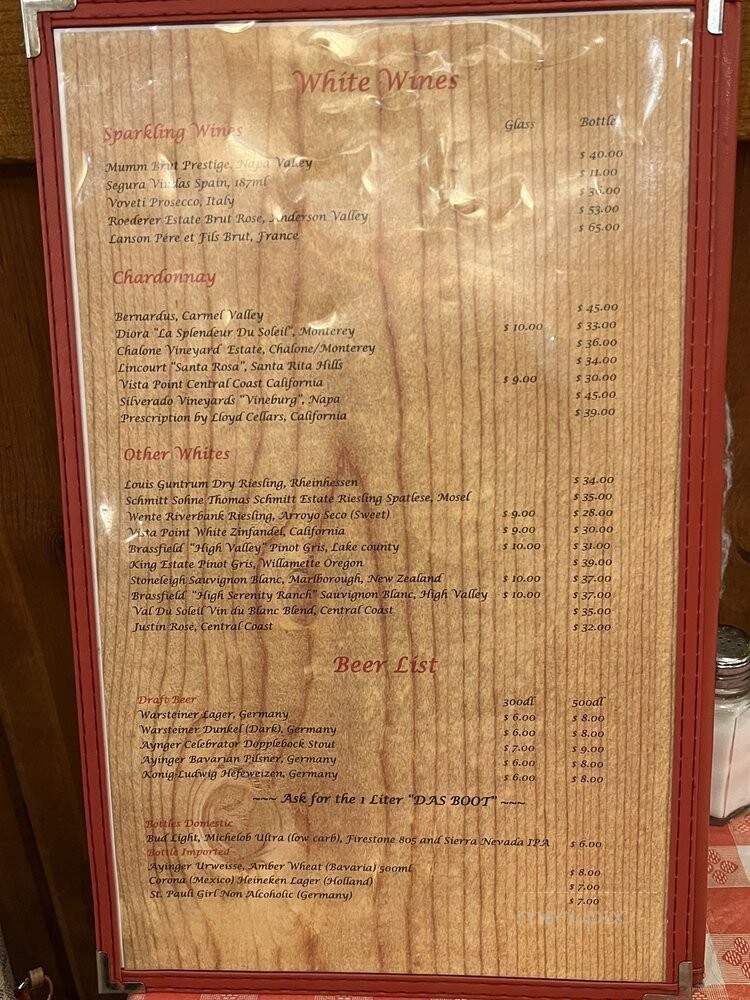 White Wines
Glass Bottle
Sparkling Wines
Mumm Brut Prestige, Napa Valley $ 40.00
Segura Viudas Spain, 187ml $ 11.00
Voveti Prosecco, Italy $ 36.00
Roederer Estate Brut Rose, Anderson Valley $ 53.00
Lanson Pére et Fils Brut, France $ 65.00
Chardonnay
Bernardus, Carmel Valley $ 45.00
Diora "La Splendeur Du Soleil", Monterey $ 10.00 $ 33.00
Chalone Vineyard Estate, Chalone/Monterey $ 36.00
Lincourt "Santa Rosa", Santa Rita Hills $ 34.00
Vista Point Central Coast California $ 9.00 $ 30.00
Silverado Vineyards "Vineburg", Napa $ 45.00
Prescription by Lloyd Cellars, California $ 39.00
Other Whites
Louis Guntrum Dry Riesling, Rheinhessen $ 34.00
Schmitt Sohne Thomas Schmitt Estate Riesling Spatlese, Mosel $ 35.00
Wente Riverbank Riesling, Arroyo Seco (Sweet) $ 9.00 $ 28.00
Vista Point White Zinfandel, California $ 9.00 $ 30.00
Brassfield "High Valley" Pinot Gris, Lake county $ 10.00 $ 31.00
King Estate Pinot Gris, Willamette Oregon $ 39.00
Stoneleigh Sauvignon Blanc, Marlborough, New Zealand $ 10.00 $ 37.00
Brassfield "High Serenity Ranch" Sauvignon Blanc, High Valley $ 10.00 $ 37.00
Val Du Soleil Vin du Blanc Blend, Central Coast $ 35.00
Justin Rosé, Central Coast $ 32.00
Beer List
Draft Beer 300dl 500dl
Warsteiner Lager, Germany $ 6.00 $ 8.00
Warsteiner Dunkel (Dark), Germany $ 6.00 $ 8.00
Aynger Celebrator Dopplebock Stout $ 7.00 $ 9.00
Ayinger Bavarian Pilsner, Germany $ 6.00 $ 8.00
Konig-Ludwig Hefeweizen, Germany $ 6.00 $ 8.00
~~~ Ask for the 1 Liter "DAS BOOT" ~~~
Bottles Domestic
Bud Light, Michelob Ultra (low carb), Firestone 805 and Sierra Nevada IPA $ 6.00
Bottle Imported
Ayinger Urweisse, Amber Wheat (Bavaria) 500ml $ 8.00
Corona (Mexico) Heineken Lager (Holland) $ 7.00
St. Pauli Girl Non Alcoholic (Germany) $ 7.00